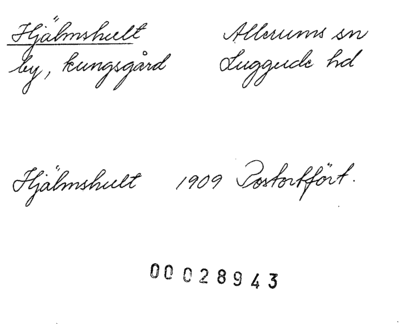 Hjälmshult Allerums sn
by, kungsgård Luggude hd
Hjälmshult 1909 Postortfört.
00028943